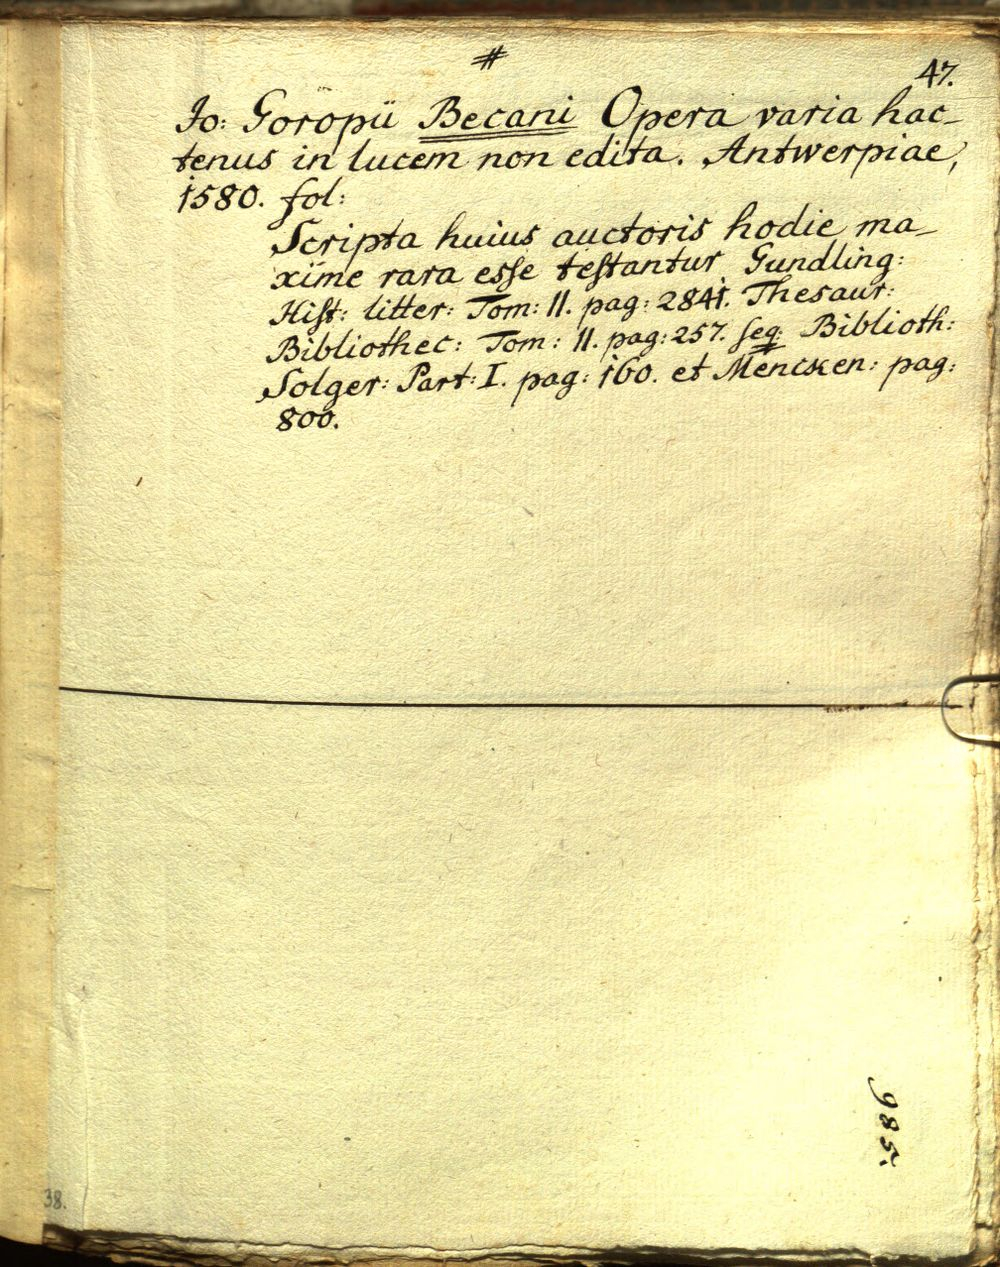 #
47.
Jo: Goropii Becani Opera varia hac-
tenus in lucem non edita. Antwerpiae,
1580. fol:
Scripta huius auctoris hodie ma-
xime rara esse testantur Gundling:
Hist: litter: Tom: II. pag: 2841. Thesaur:
Bibliothec: Tom: II. pag: 257. seq: Biblioth:
Solger: Part: I. pag: 160. et Mencken: pag:
800.
985.
38.